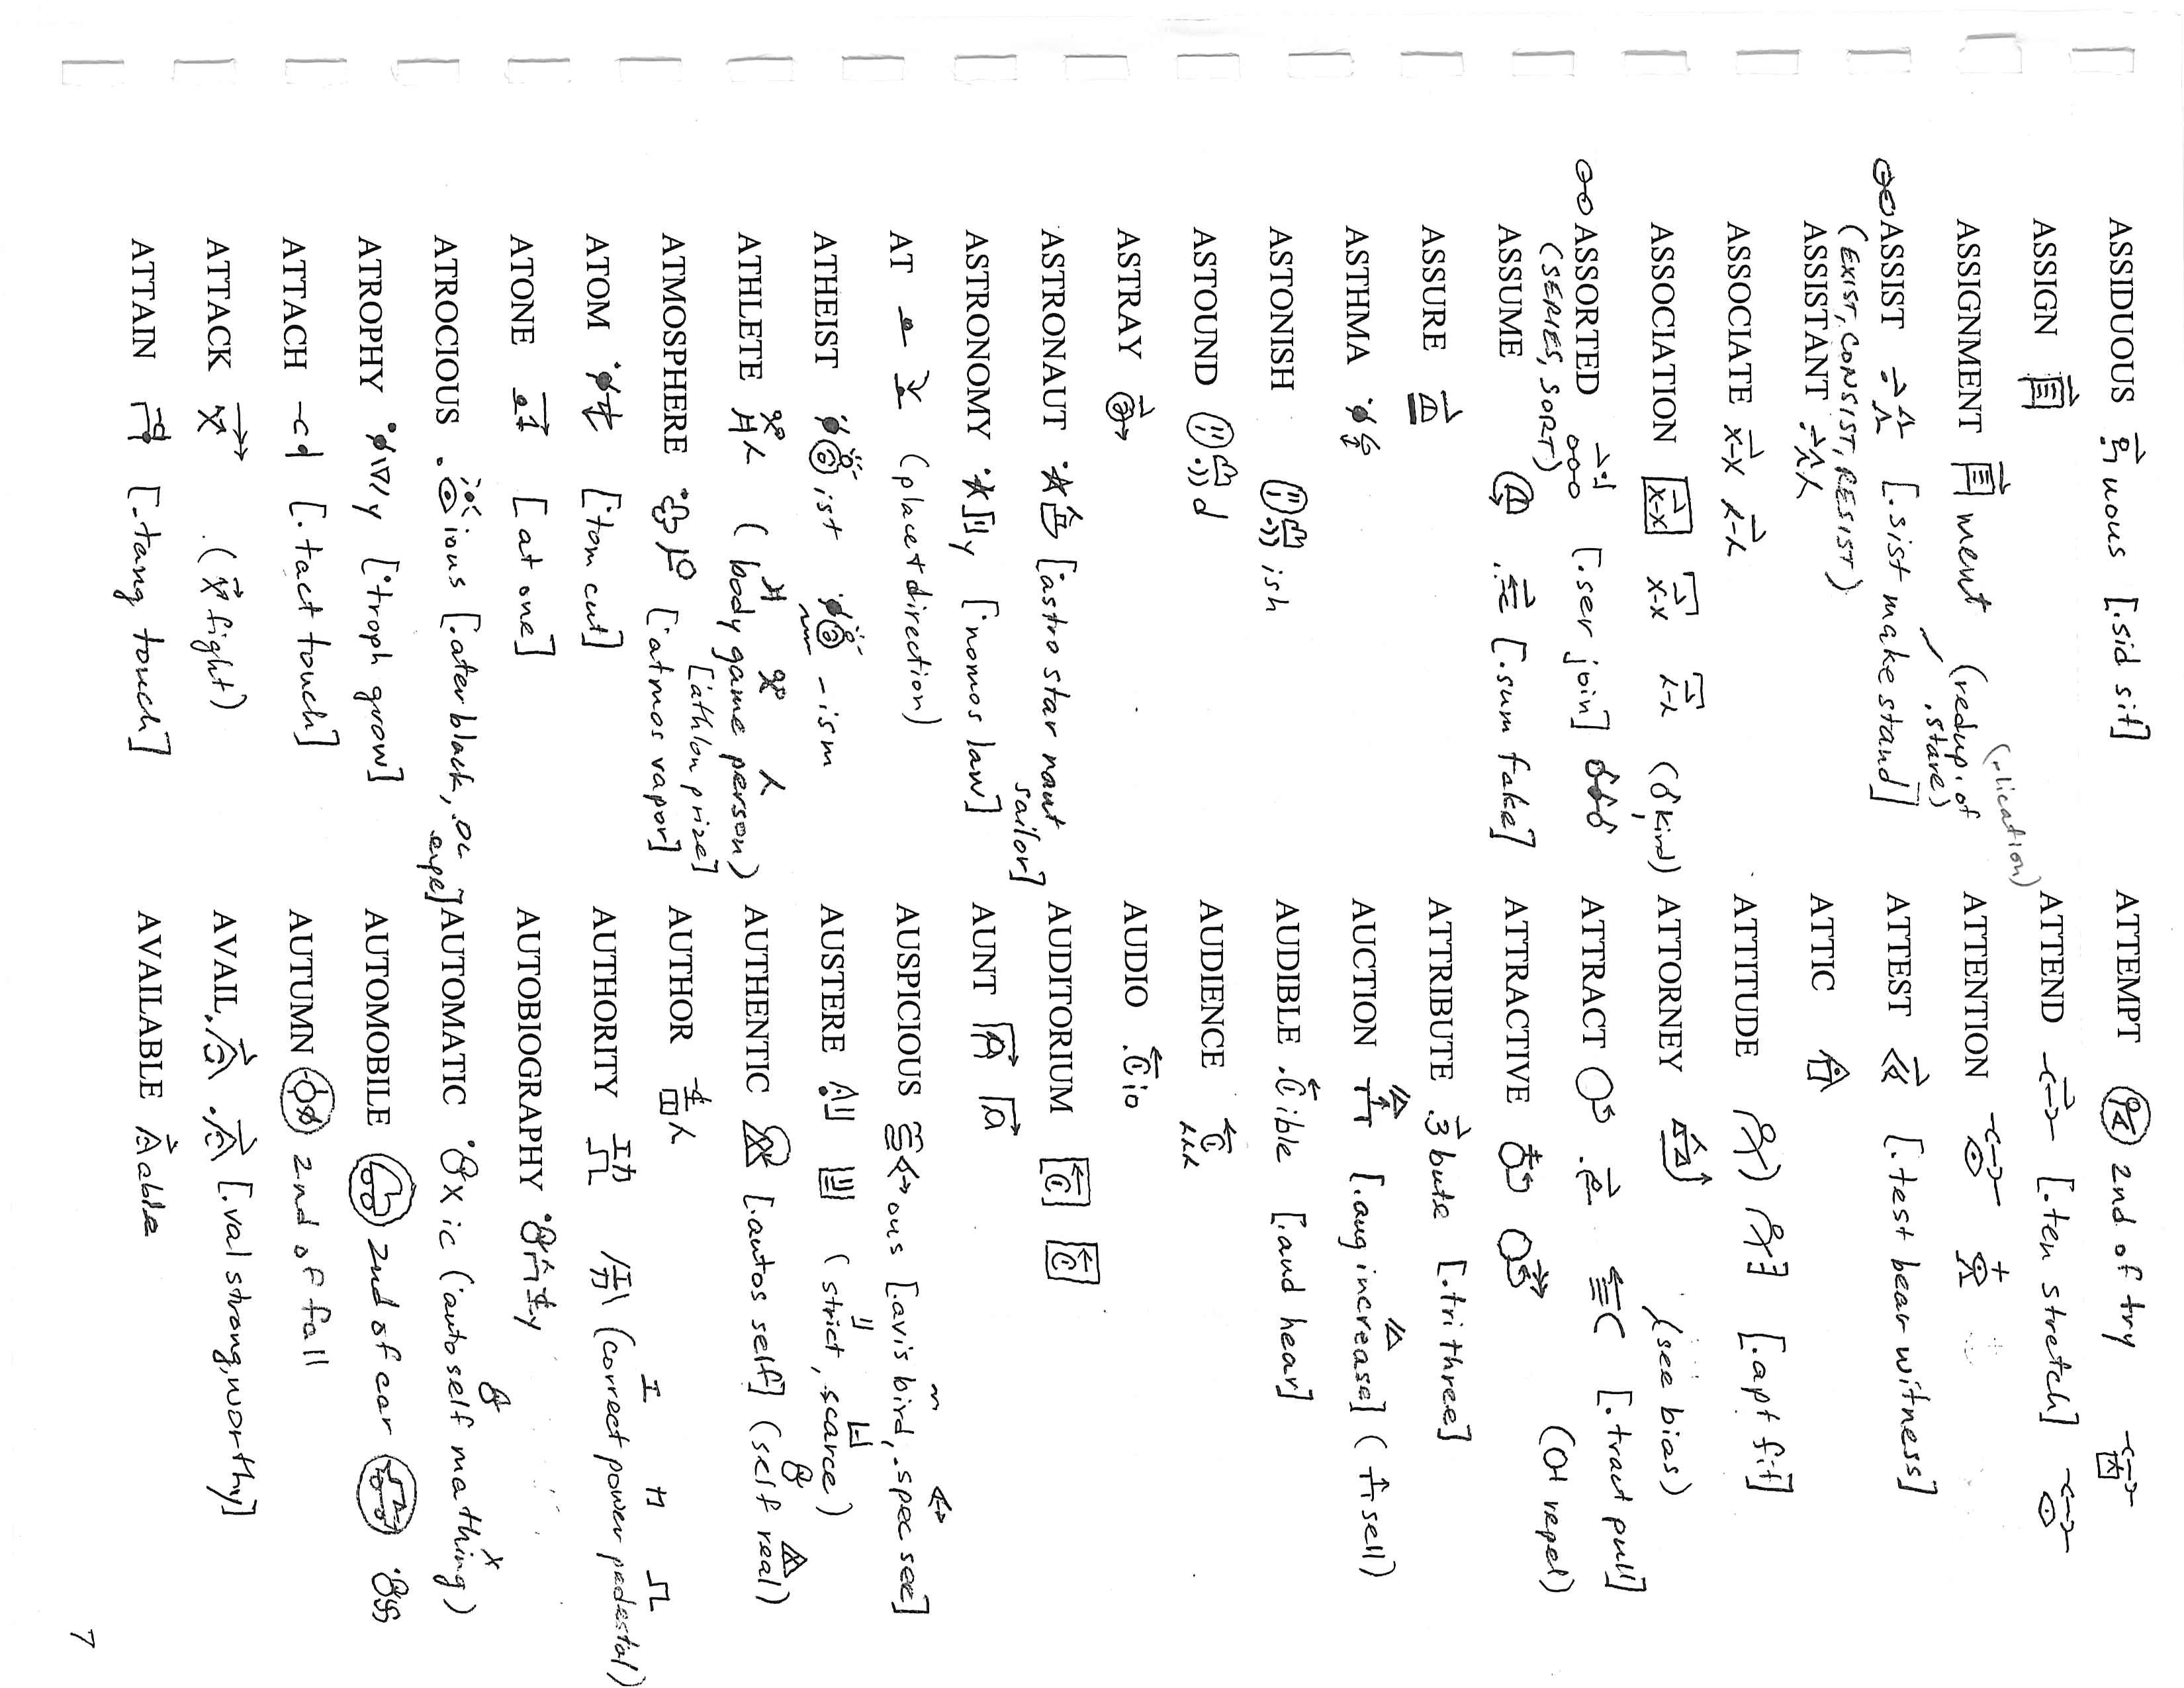 ASSIDUOUS uous [.sid sit]
ASSIGN
ASSIGNMENT ment (redup. of .stare)
(.lication)
ASSIST [.sist make stand]
(EXIST, CONSIST, RESIST)
ASSISTANT
ASSOCIATE x-x
ASSOCIATION x-x x-x (kind)
ASSORTED [.ser join]
(SERIES, SORT)
ASSUME [.sum take]
ASSURE
ASTHMA
ASTONISH ish
ASTOUND d
ASTRAY
ASTRONAUT [astro star naut sailor]
ASTRONOMY y [nomos law]
AT (place+direction)
ATHEIST ist -ism
ATHLETE (body game person)
[athlon prize]
ATMOSPHERE [atmos vapor]
ATOM [tom cut]
ATONE [at one]
ATROCIOUS ious [.ater black, .oc eye]
ATROPHY y [troph grow]
ATTACH [.tact touch]
ATTACK (fight)
ATTAIN [.tang touch]
ATTEMPT 2nd of try
ATTEND [.ten stretch]
ATTENTION +
ATTEST [.test bear witness]
ATTIC
ATTITUDE [.apt fit]
ATTORNEY (see bias)
ATTRACT [.tract pull]
ATTRACTIVE (repel)
ATTRIBUTE 3 bute [.tri three]
AUCTION [.aug increase] (sell)
AUDIBLE ible [.aud hear]
AUDIENCE
AUDIO io
AUDITORIUM
AUNT
AUSPICIOUS ous [.avis bird, .spec see]
AUSTERE (strict, scarce)
AUTHENTIC [.autos self] (self real)
AUTHOR
AUTHORITY (correct power pedestal)
AUTOBIOGRAPHY y
AUTOMATIC x ic (auto self ma thing)
AUTOMOBILE 2nd of car
AUTUMN 2nd of fall
AVAIL [.val strong, worthy]
AVAILABLE able
7